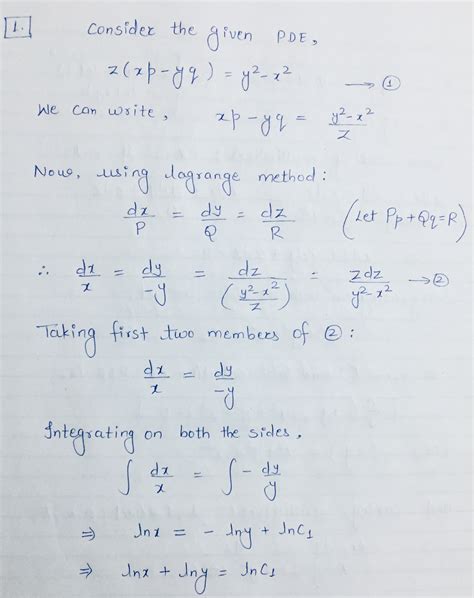 1. Consider the given PDE,
z(xp-yq) = y²-x² → ①
We can write, xp-yq = (y²-x²)/z
Now, using lagrange method:
dx/P = dy/Q = dz/R (Let Pp+Qq=R)
∴ dx/x = dy/-y = dz/((y²-x²)/z) = zdz/(y²-x²) → ②
Taking first two members of ②:
dx/x = dy/-y
Integrating on both the sides,
∫ dx/x = ∫ - dy/y
⇒ lnx = - lny + lnC₁
⇒ lnx + lny = lnC₁